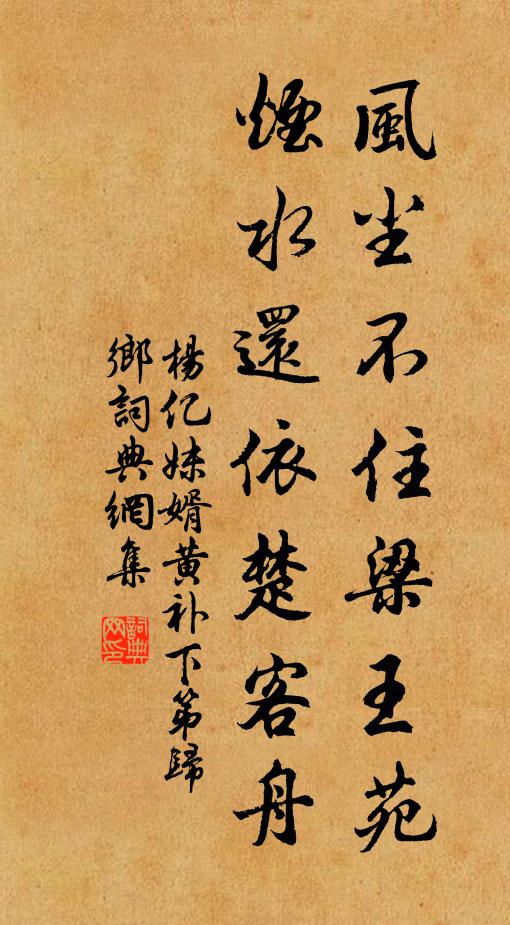 風尘不住梁王苑
煙水還依楚客舟
楊亿妹婿黄补下第歸
鄉詞典網集
詞典
网印